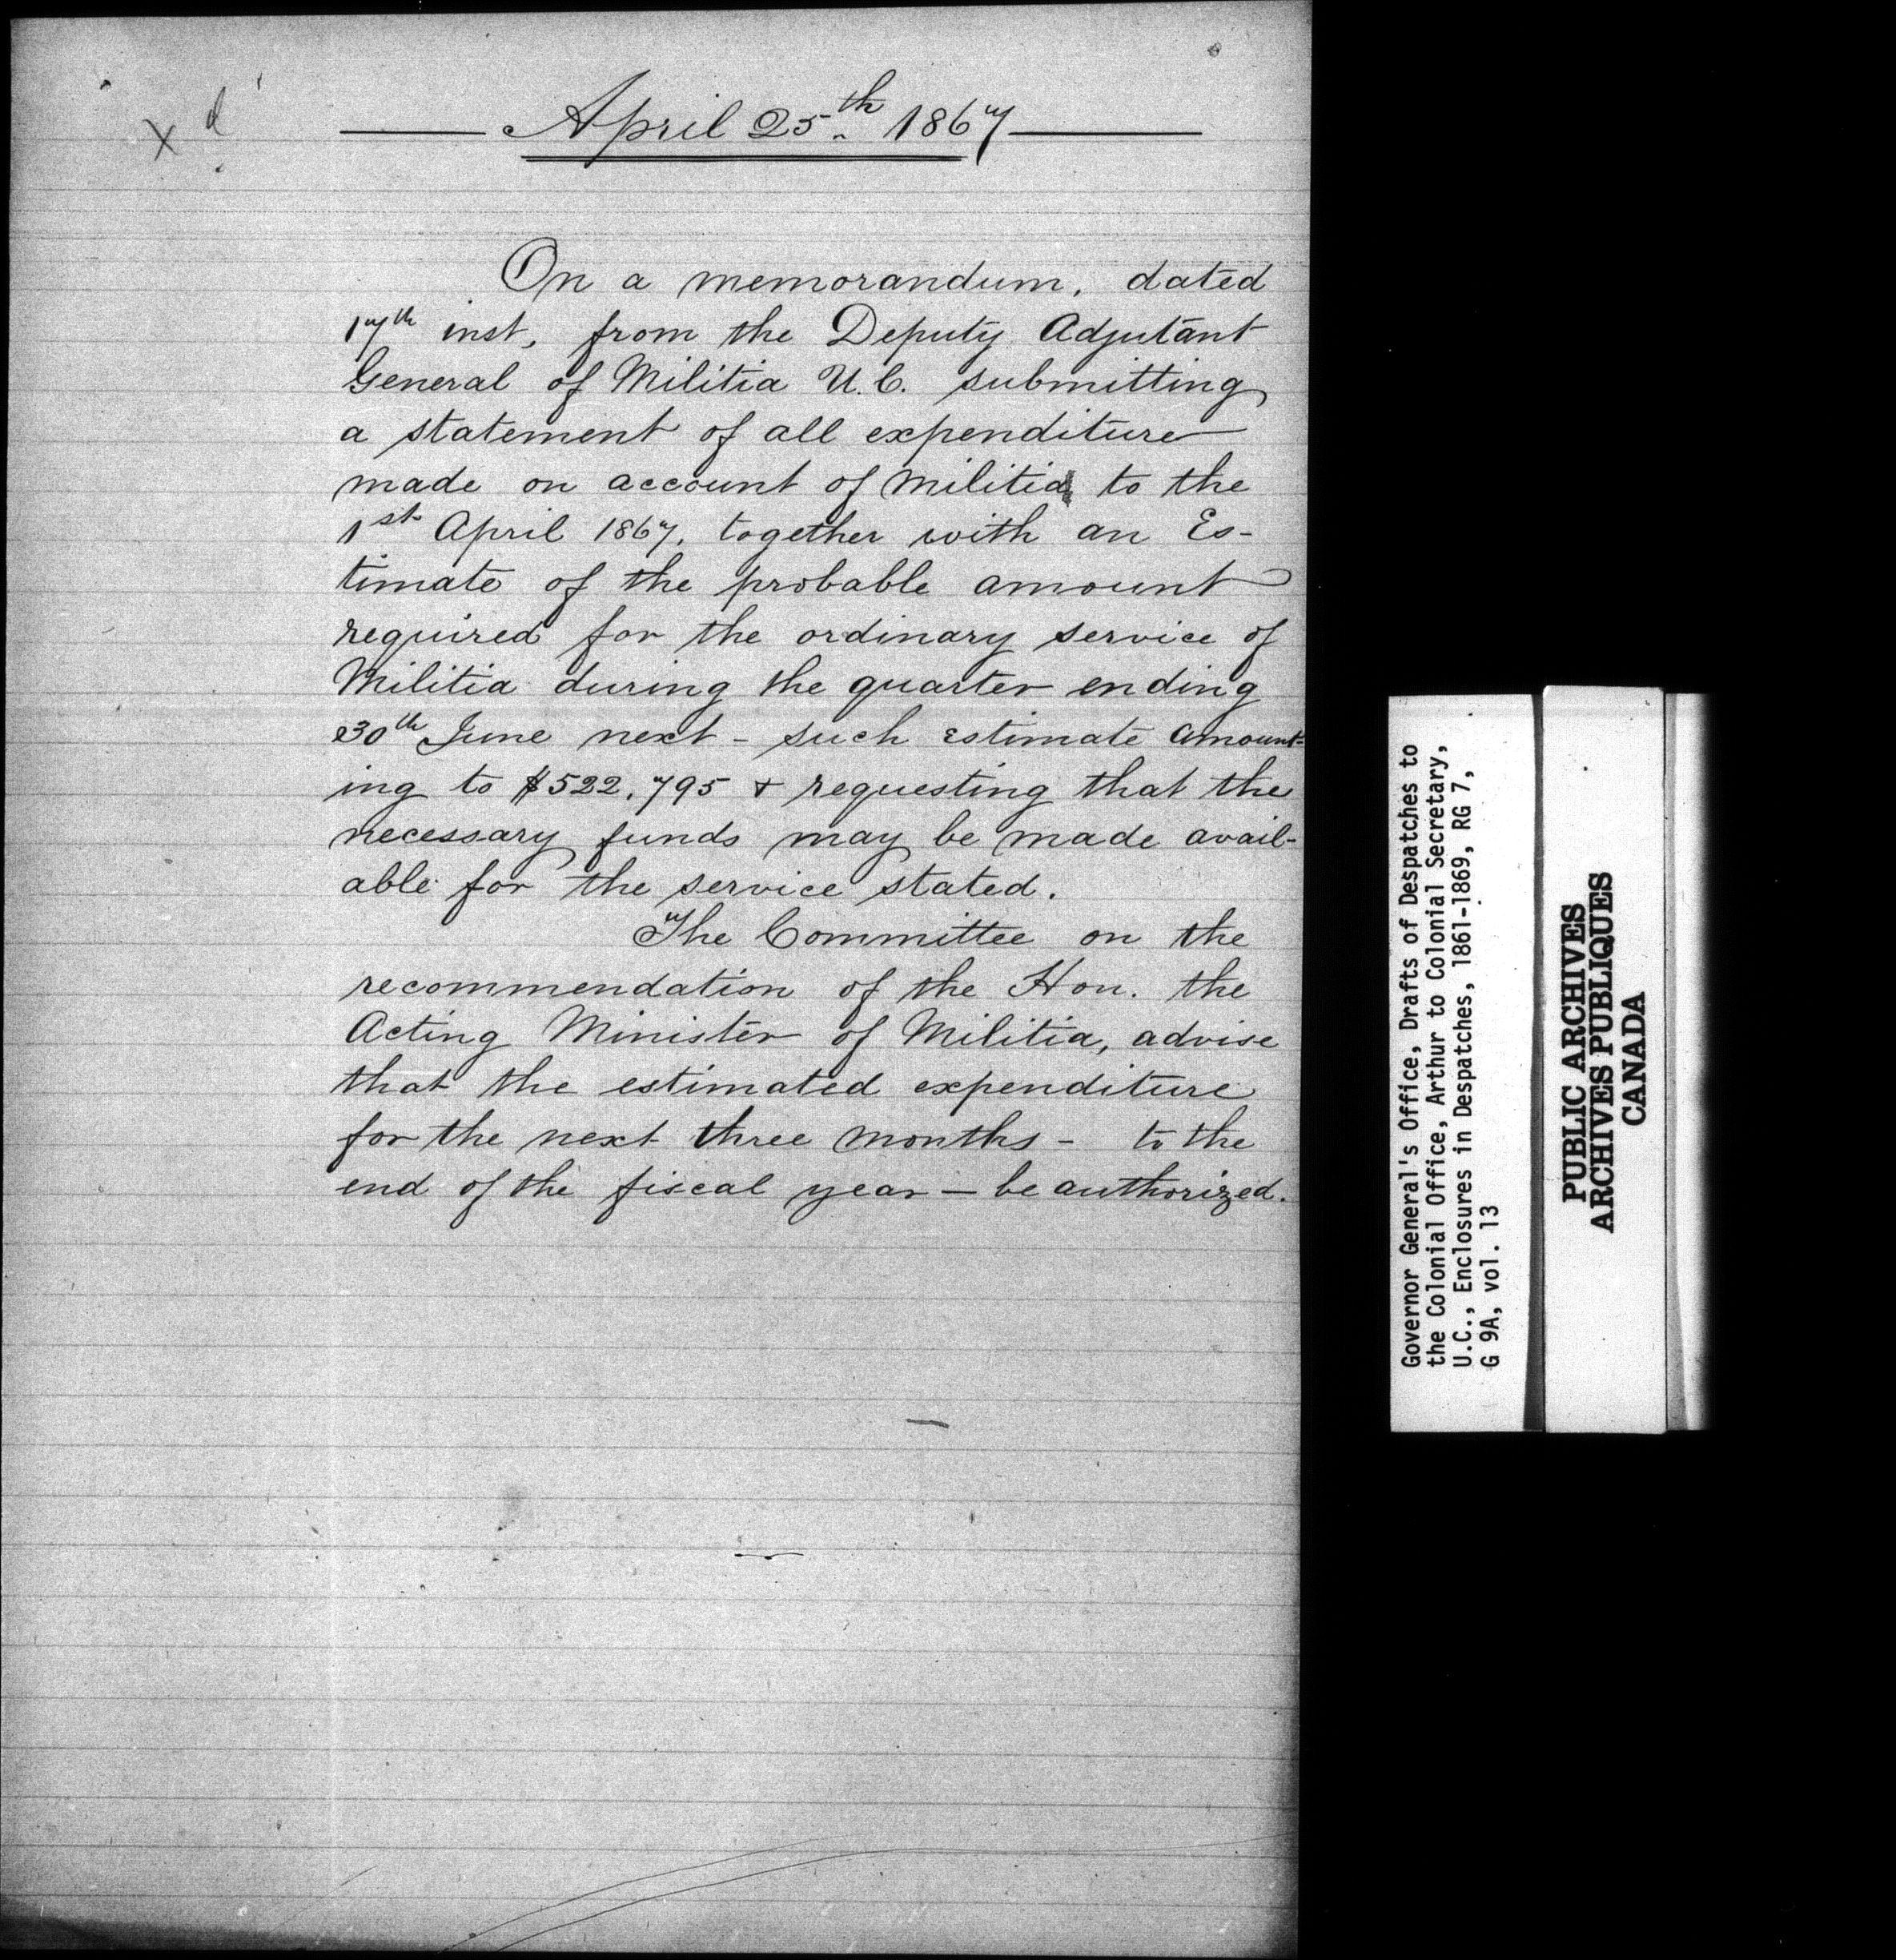 x d
April 25th 1867
On a memorandum, dated
17th inst, from the Deputy Adjutant
General of Militia U.C. submitting
a statement of all expenditure
made on account of Militia to the
1st April 1867, together with an Es-
timate of the probable amount
required for the ordinary service of
Militia during the quarter ending
30th June next - such estimate amount-
ing to $522,795 & requesting that the
necessary funds may be made avail-
able for the service stated.
The Committee on the
recommendation of the Hon. the
Acting Minister of Militia, advise
that the estimated expenditure
for the next three months - to the
end of the fiscal year - be authorized.
Governor General's Office, Drafts of Despatches to
the Colonial Office, Arthur to Colonial Secretary,
U.C., Enclosures in Despatches, 1861-1869, RG 7,
G 9A, vol. 13
PUBLIC ARCHIVES
ARCHIVES PUBLIQUES
CANADA